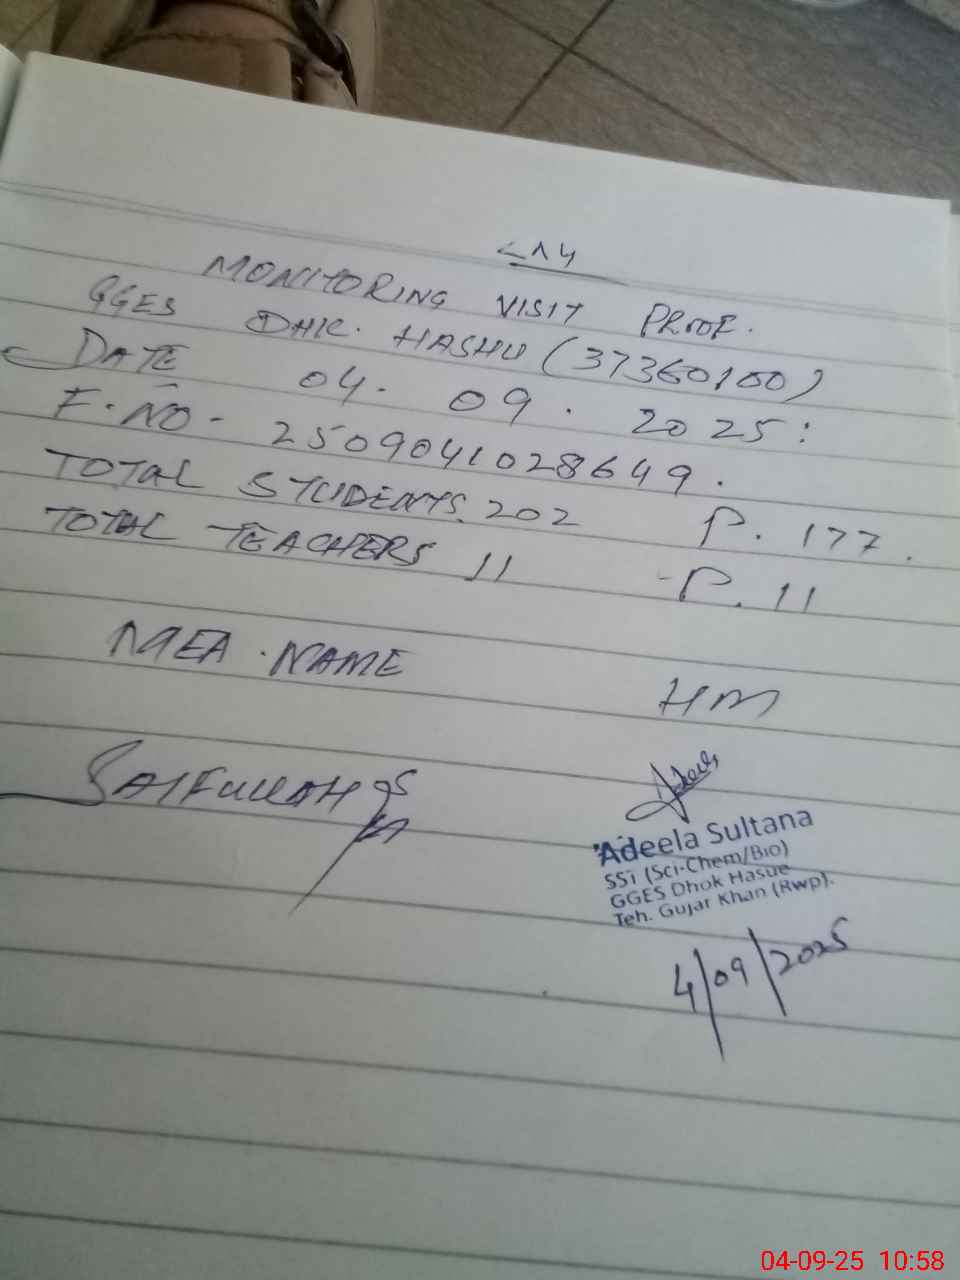 MONITORING VISIT PROOF.
GGES DHK. HASHU (37360100)
DATE 04. 09. 2025:
F. NO - 2509041028649.
TOTAL STUDENTS. 202 P. 177.
TOTAL TEACHERS 11 P. 11
MEA. NAME
HM
SAIFULLAH
Adeela Sultana
SSi (Sci-Chem/Bio)
GGES Dhok Hasue
Teh. Gujar Khan (Rwp).
4/09/2025
04-09-25 10:58